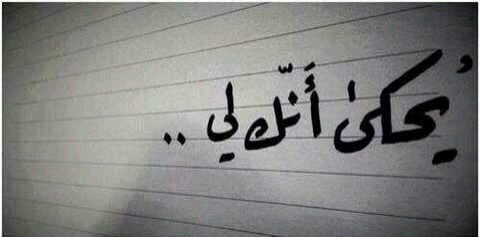 يُحكىٰ أَنّك لي ..